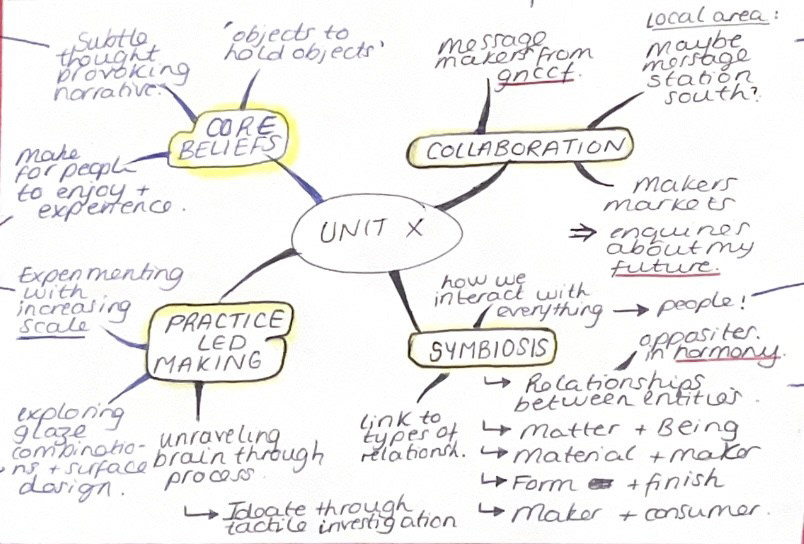 Subtle
thought
provoking
narrative.
'objects to
hold objects'
CORE
BELIEFS
make
for people
to enjoy +
experience.
message
makers from
gnccf.
local area:
maybe
message
station
south?
COLLABORATION
makers
markets
⇒ enquires
about my
future.
UNIT X
Experimenting
with
increasing
scale
PRACTICE
LED
MAKING
exploring
glaze
combinatio-
ns + surface
design.
unraveling
brain through
process.
↳ Ideate through
tactile investigation
how we
interact with
everything → people!
SYMBIOSIS
opposites.
in harmony.
link to
types of
relationsh.
↳ Relationships
between entities.
↳ Matter + Being
↳ Material + maker
↳ Form + finish
↳ Maker + consumer.